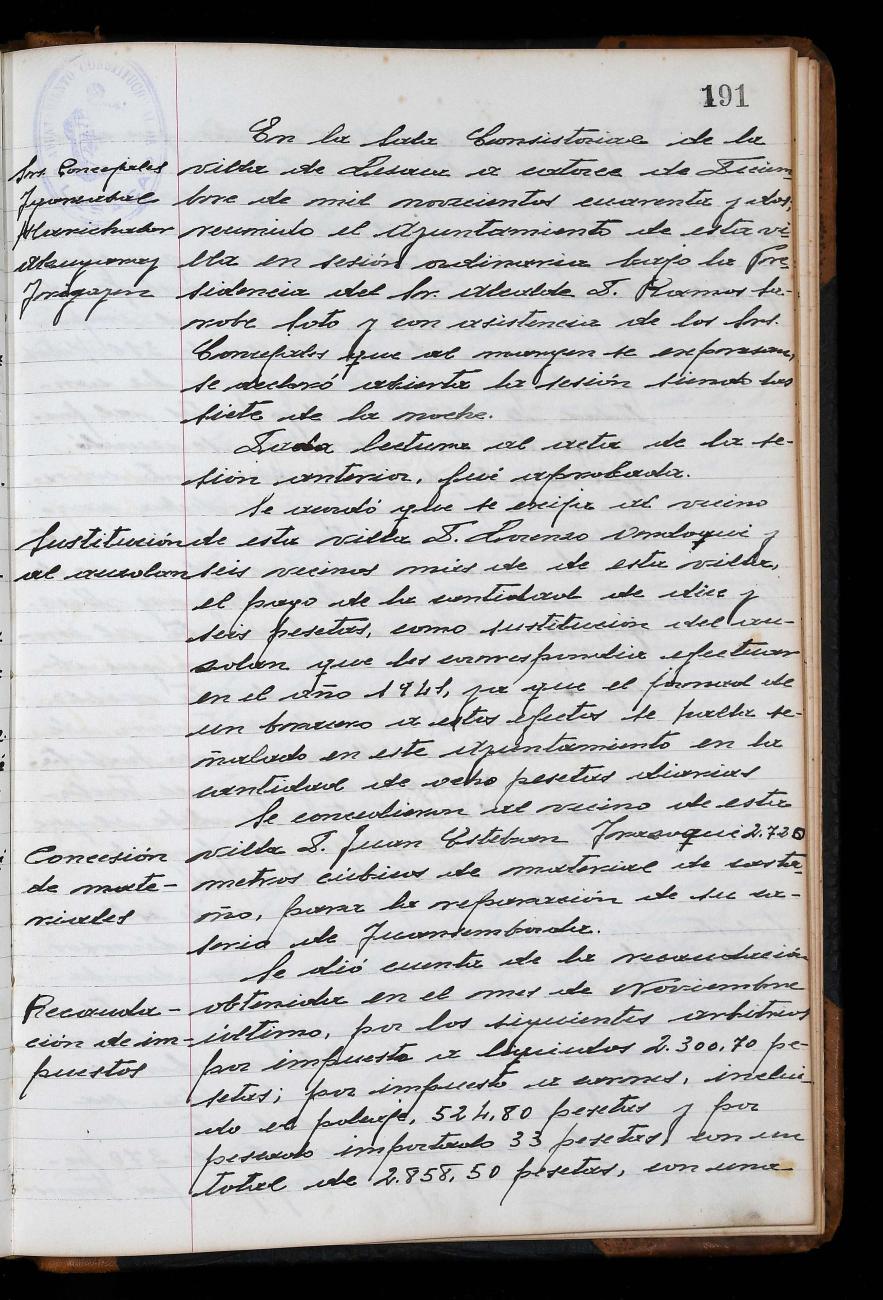 191
AYUNTAMIENTO CONSTITUCIONAL DE
En la Sala Consistorial de la
villa de Lesaca a catorce de Diciem-
bre de mil novecientos cuarenta y dos,
reunido el Ayuntamiento de esta vi-
lla en sesión ordinaria bajo la Pre-
sidencia del Sr. Alcalde D. Ramos Sa-
robe Soto y con asistencia de los Srs.
Concejales que al margen se expresan,
se declaró abierta la sesión siendo las
siete de la noche.
Srs. Concejales
Marichalar
Irigoyen
Dada lectura al acta de la se-
sión anterior, fué aprobada.
Se acordó que se exija al vecino
de esta villa D. Lorenzo Endoqui y
seis vecinos más de de esta villa,
el pago de la cantidad de diez y
seis pesetas, como sustitución del au-
zolan que les correspondia efectuar
en el año 1941, ya que el jornal de
un bracero a estos efectos se halla se-
ñalado en este Ayuntamiento en la
cantidad de ocho pesetas diarias
Sustitución
al auzolan
Se concedieron al vecino de esta
villa D. Juan Esteban Irazoqui 2.720
metros cúbicos de material de casta-
ño, para la reparación de su ca-
serio de Juansemborda.
Concesión
de mate-
riales
Se dió cuenta de la recaudación
obtenida en el mes de Noviembre
último, por los siguientes arbitrios
por impuesto a liquidos 2.300,70 pe-
setas; por impuesto a carnes, inclui-
do el poleaje, 524,80 pesetas y por
pescado importado 33 pesetas, con un
total de 2.858,50 pesetas, con una
Recauda-
ción de im-
puestos